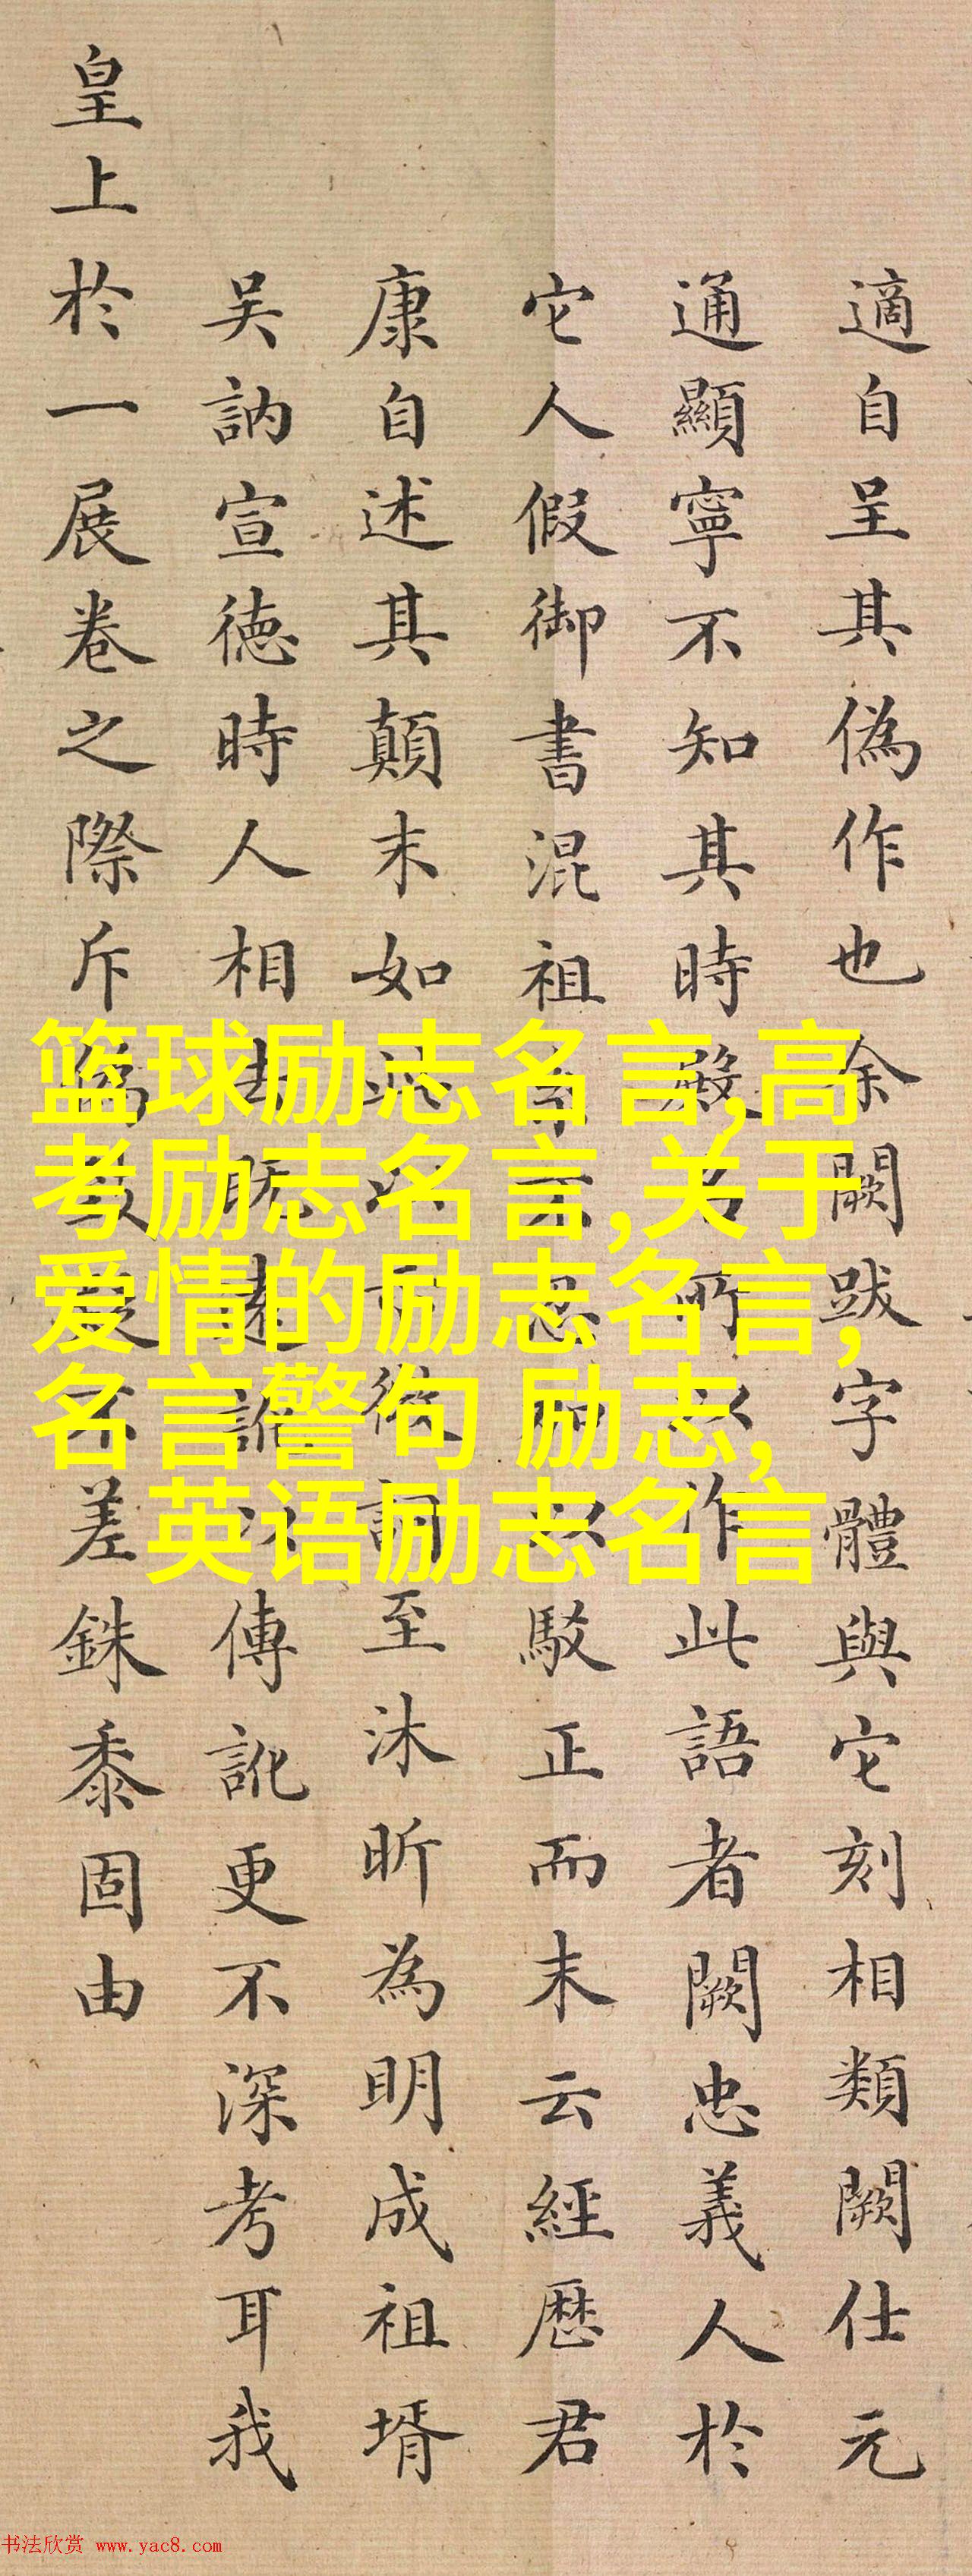 適自呈其偽作也余闕跋字體與它刻相類闕仕元
通顯寧不知其時殿名所以作此語者闕忠義人於
它人假御書混祖駁正而末云經歷君
康自述其顛末如此至沐昕為明成祖壻
吴訥宣德時人相去傳訛更不深考耳我
皇上於一展卷之際斥為差銖黍固由
篮球励志名言,高
考励志名言,关于
爱情的励志名言,
名言警句 励志,
英语励志名言
书法欣赏 www.yac8.com